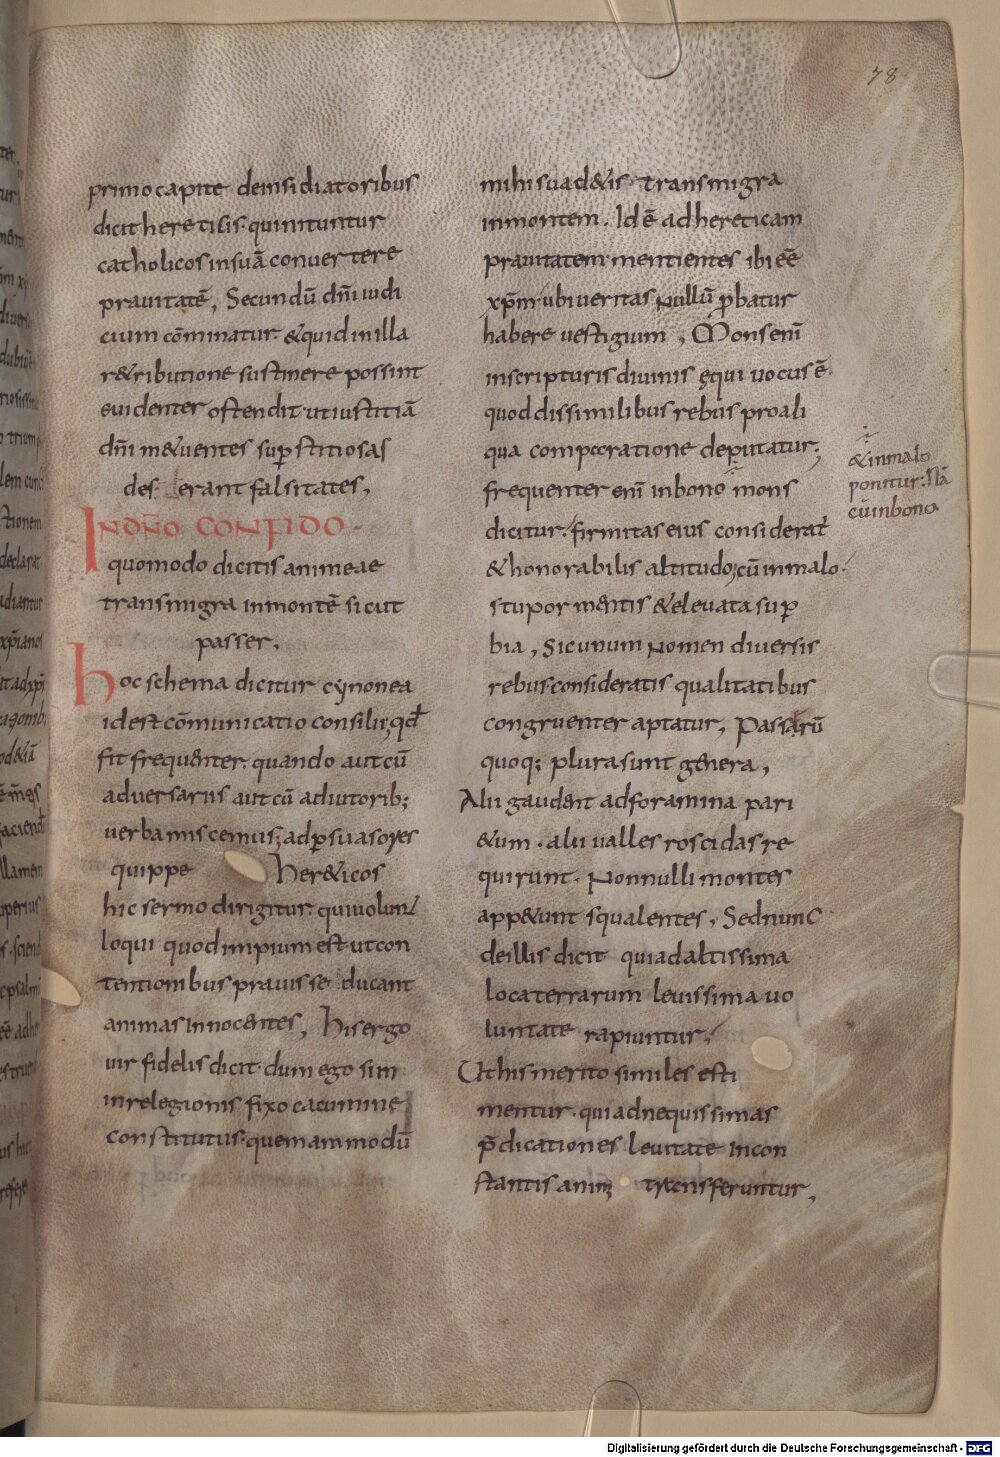 78
primo capite deinsidiatoribus
dicit heretisis quinituntur
catholicos insuā convertere
pravitatē, Secundū dn̄i iudi
cium cōminatur. & quid inilla
r&ributione sustinere possint
evidenter ostendit. ut iustitiā
dn̄i m&uentes sup̄stitiosas
des erant falsitates,
INDN̄O CONFIDO.
quomodo dicitis animeae
transmigra inmontē sicut
passer.
hoc schema dicitur cynonea
idest cōmunicatio consilii, qd̄
fit frequenter. quando autcū
adversariis autcū adiutorib;
verba miscemus; ad p̄suasores
quippe Her&icos
hic sermo dirigitur. qui volunt
loqui quod impium est ut con
tentionibus pravis se ducant
animas innocentes, hisergo
vir fidelis dicit. dum ego sim
inrelegionis fixo cacumine
constitutus. quemammodū
mihi suad&is transmigra
inmontem. Id ē adhereticam
pravitatem mentientes ibi eē
xp̄m ubi veritas nullū p̄batur
habere vestigium, Mons enī
inscripturis divinis ęqui vocus ē.
quod dissimilibus rebus pro ali
qua comparatione deputatur;
frequenter enī inbono mons
dicitur. firmitas eius considerat
& honorabilis altitudo; cū inmalo.
stupor mentis & elevata sup̄
bia, Sic unum nomen diversis
rebus consideratis qualitatibus
congruenter aptatur, Passarū
quoq; plura sunt genera,
Alii gaudent adforamina pari
&um. alii valles roscidas re
quirunt. Nonnulli montes
app&unt squalentes, Sed nunc
deillis dicit quia daltissima
loca terrarum levissima vo
luntate rapiuntur.
Uthis merito similes esti
mentur. qui adnequissimas
p̄dicationes levitate incon
stantis animę transferuntur,
& inmalo
ponitur. Nā
cū inbono
Digitalisierung gefördert durch die Deutsche Forschungsgemeinschaft - DFG